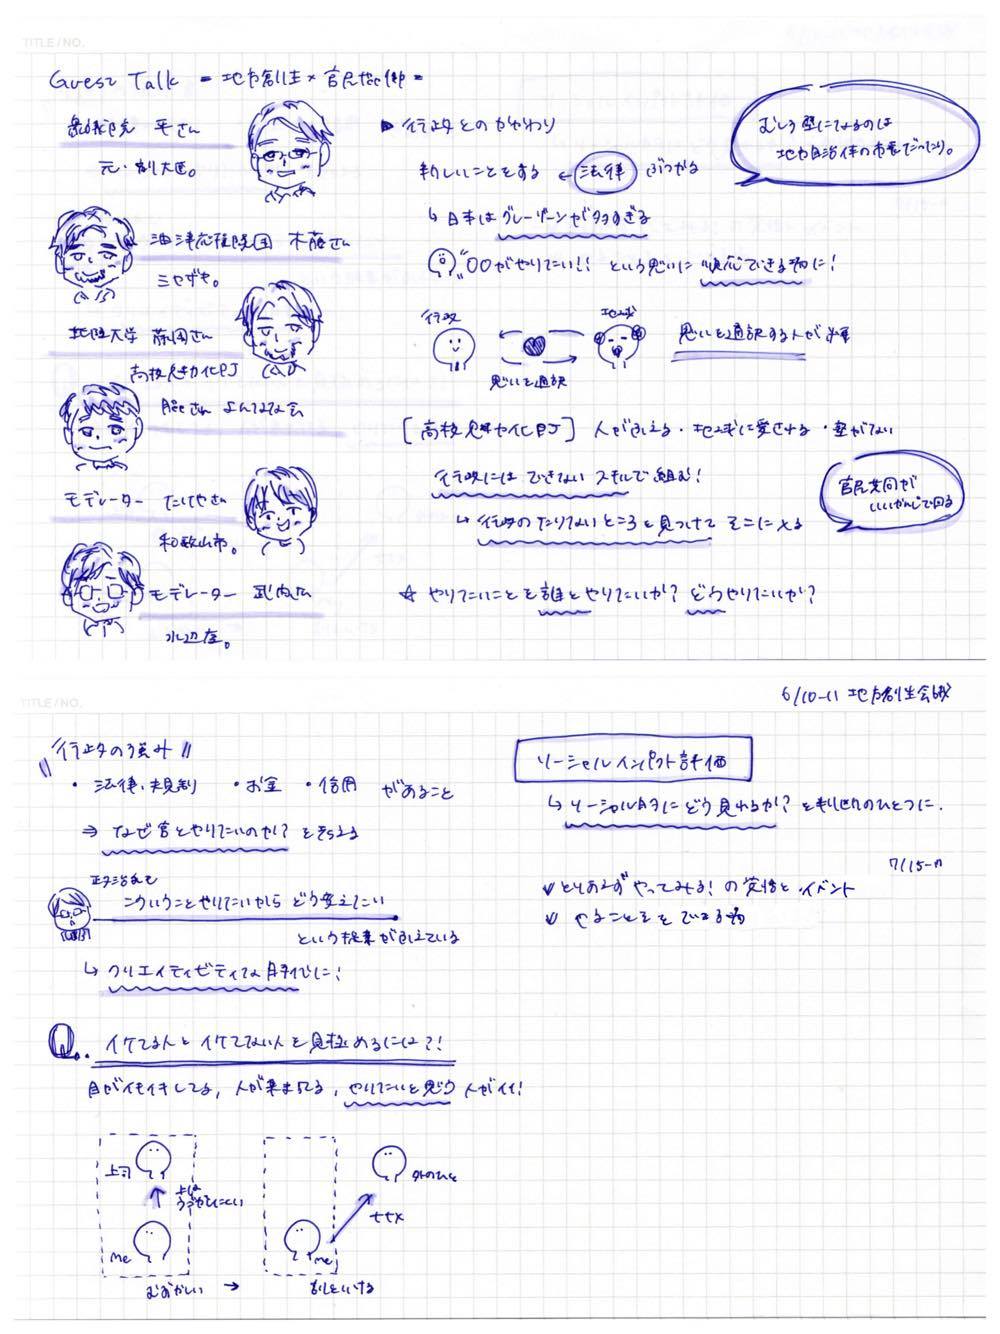 TITLE/NO.
Guest Talk = 地方創生×官民協働 =
平さん
元・副大臣。
油津応援団 木藤さん
ミヤザキ。
大学 さん
高校魅力化PJ
さん よんなな会
モデレーター たけやさん
和歌山市。
モデレーター 武内さん
水辺座。
▶ 行政とのかかわり
新しいことをする ← 法律 ぶつかる
↳ 日本はグレーゾーンが多すぎる
"○○がやりたい!! という思いに 順応できる為に!
行政 地域
思いを通訳
思いを通訳する人が必要
むしろ壁になるのは
地方自治体の市長だったり。
[高校魅力化PJ] 人がふえる・地域に愛される・壁がない
行政にはできないスキルで組む!
↳ 行政のたりないところを見つけて そこに
官民共同が
いいかんじで回る
☆ やりたいことを誰とやりたいか? どうやりたいか?
TITLE/NO.
6/10-11 地方創生会議
行政の強み
・法律、規制 ・お金 ・信用 があること
⇒ なぜ官とやりたいのか? を考える
政治家も
こういうことやりたいから どう変えたい
という提案がふえている
↳ クリエイティビティな 手伝に!
Q. イケてる人と イケてない人を見極めるには?!
目がイキイキしてる, 人が集まってる, やりたいと思う 人がイイ!
上司
上は
うごかしにくい
me
むずかしい →
外のひと
me
ソーシャルインパクト評価
↳ ソーシャル的にどう見れるか? を判断のひとつに.
7/15-17
✓ とりあえずやってみる! の覚悟と イベント
✓ やることを できる